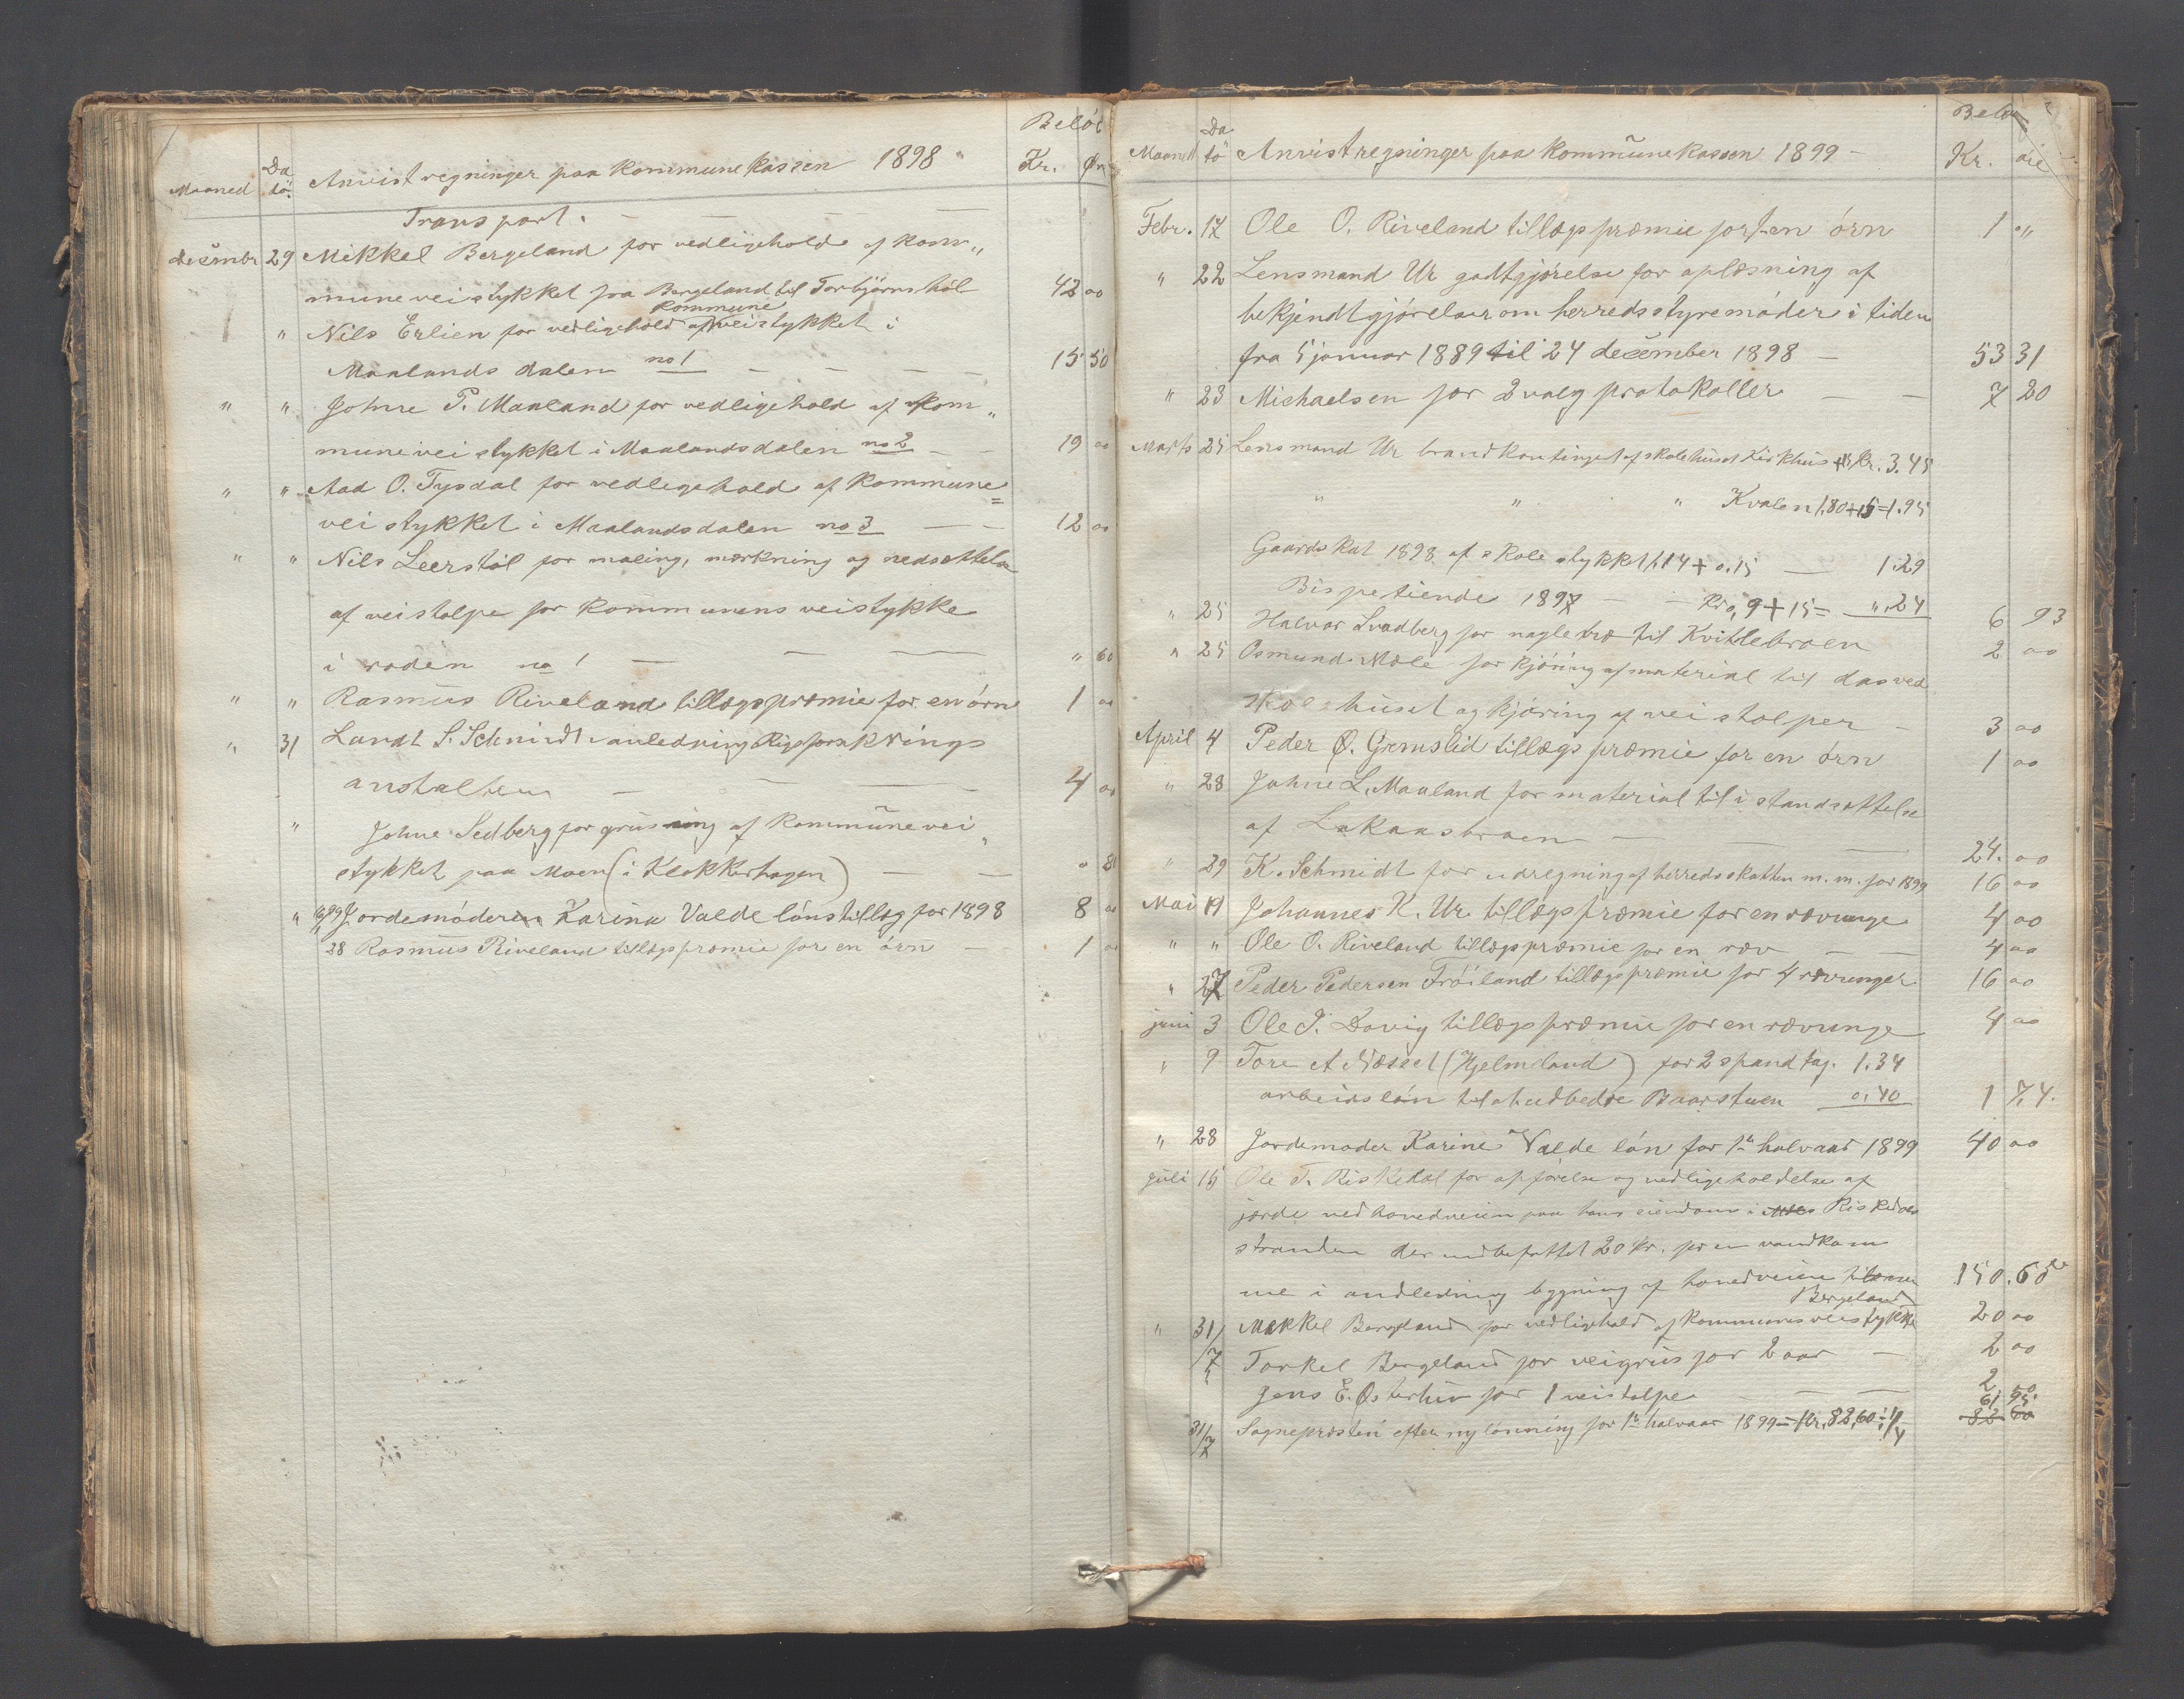 Beløb
Maaned Dato Anvist regninger paa kommunekassen 1898 Kr. Øre
Transport.
Desember 29 Mikkel Bergeland for vedligehold af kom„
muneveistykket fra Bergeland til Torbjørnshøl 42 00
kommune
" Nils Erlien for vedligehold af veistykket i
Maalands dalen no 1 15 50
" " Johne P. Maaland for vedligehold af kom„
muneveistykket i Maalandsdalen no 2 19 00
" " Aad O. Tysdal for vedligehold af kommune=
veistykket i Maalandsdalen no 3 12 00
" " Nils Leerstøl for maling, mærkning og nedsættelse
af veistolpe for kommunens veistykke
i roden no 1 " 60
" " Rasmus Riveland tillægspræmie for en ørn 1 00
" 31 Lundt S. Schmidt i anledning Rigsforsikrings
anstalten 4 00
" Johne Sedberg for grusning af kommunevei„
stykket paa Moen (i Klokkerhagen) 0 80
" Jordemoderen Karina Valde lønstillæg for 1898 8 00
28 Rasmus Riveland tillægspræmie for en ørn 1 00
Beløb
Maaned Dato Anvist regninger paa kommunekassen 1899 Kr. øre
Febr. 17 Ole O. Riveland tillægspræmie for en ørn 1 "
" 22 Lensmand Ur godtgjørelse for oplæsning af
bekjendtgjørelser om herredsstyremøder i tiden
fra 5 januar 1889 til 24 desember 1898 53 31
" 23 Michaelsen for 2 valgprotokoller 7 20
Marts 25 Lensmand Ur brandkontingent af skolehuset Kirkhus + 15 Kr. 3.45
" " " Kvalen 1.80+15=1.95
Gaardskat 1898 af skolestykket 1.14 + 0.15 1.29
Bispetiende 1897 Kr 0,9+15= ",24 6 93
" 25 Halvor Svadberg for nagletræ til Kvitlebroen 2 00
" 25 Osmund Mæle for kjøring af material til das ved
skolehuset og kjøring af veistolper 3 00
April 4 Peder Ø. Gremslid tillægspræmie for en ørn 1 00
" 28 Johne L. Maaland for material til istandsættelse
af Lakaasbroen 24. 00
" 29 K. Schmidt for udregning af herredsskatten m.m. for 1899 16 00
Mai 19 Johannes K. Ur tillægspræmie for en rævunge 4 00
" " Ole O. Riveland tillægspræmie for en ræv 4 00
" 27 Peder Pedersen Frøiland tillægspræmie for 4 rævunger 16 00
juni 3 Ole I. Dovig tillægspræmie for en rævunge 4 00
" 9 Tore A Næsset (Hjelmeland) for 2 spand tag. 1.34
arbeidsløn til at udbedre Baarstuen 0,40 1 74.
" 28 Jordemoder Karine Valde løn for 1te halvaar 1899 40 00
Juli 15 Ole T. Riskedal for opførelse og vedligeholdelse af
jærde ved hovedveien paa hans eiendom i Riskedal
stranden der indbefattet 20 Kr. for en vandkom
me i andledning bygning af hovedveien 150.60
Bergeland
" 31/7 Mikkel Bergeland for vedligehold af kommunens veistykke 20 00
Torkel Bergeland for veigrus for 2 aar 2 00
Jens E. Østerhus for 1 veistolpe 2
61 95
31/7 Sognepresten efter ny lønning for 1te halvaar 1899 = Kr. 82,60 ÷ 1/4 82 60